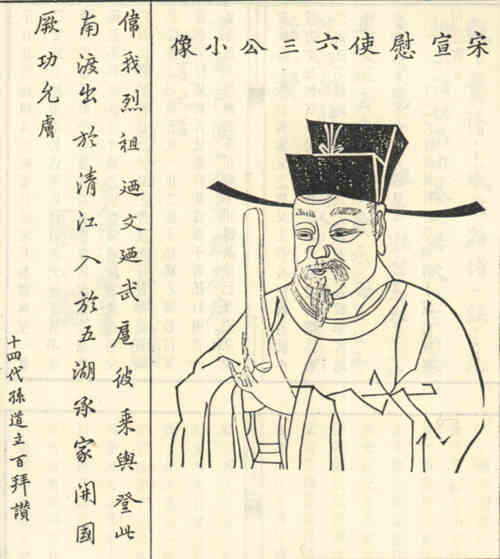 宋宣慰使六三公小像
偉我烈祖廼文廼武扈彼乘輿登此
南渡出於清江入於五湖承家開國
厥功允膚
十四代孫道立百拜讚